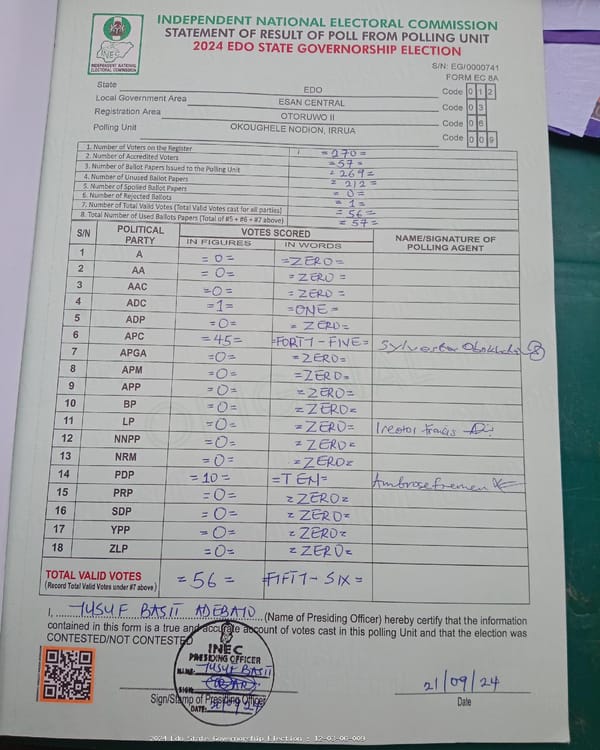 INDEPENDENT NATIONAL ELECTORAL COMMISSION
STATEMENT OF RESULT OF POLL FROM POLLING UNIT
2024 EDO STATE GOVERNORSHIP ELECTION
INEC
INDEPENDENT NATIONAL
ELECTORAL COMMISSION
S/N: EG/0000741
FORM EC 8A
State EDO Code 0 1 2
Local Government Area ESAN CENTRAL Code 0 3
Registration Area OTORUWO II Code 0 6
Polling Unit OKOUGHELE NODION, IRRUA Code 0 0 9
1. Number of Voters on the Register =270=
2. Number of Accredited Voters =57=
3. Number of Ballot Papers Issued to the Polling Unit =269=
4. Number of Unused Ballot Papers =212=
5. Number of Spoiled Ballot Papers =0=
6. Number of Rejected Ballots =1=
7. Number of Total Valid Votes (Total Valid Votes cast for all parties) =56=
8. Total Number of Used Ballots Papers (Total of #5 + #6 + #7 above) =57=
S/N POLITICAL PARTY VOTES SCORED NAME/SIGNATURE OF POLLING AGENT
IN FIGURES IN WORDS
1 A =0= =ZERO=
2 AA =0= =ZERO=
3 AAC =0= =ZERO=
4 ADC =1= =ONE=
5 ADP =0= =ZERO=
6 APC =45= =FORTY-FIVE= Sylvester
7 APGA =0= =ZERO=
8 APM =0= =ZERO=
9 APP =0= =ZERO=
10 BP =0= =ZERO=
11 LP =0= =ZERO= Francis
12 NNPP =0= =ZERO=
13 NRM =0= =ZERO=
14 PDP =10= =TEN= Ambrose
15 PRP =0= =ZERO=
16 SDP =0= =ZERO=
17 YPP =0= =ZERO=
18 ZLP =0= =ZERO=
TOTAL VALID VOTES =56= =FIFTY-SIX=
(Record Total Valid Votes under #7 above)
I, YUSUF BASIT ADEBAYO (Name of Presiding Officer) hereby certify that the information
contained in this form is a true and accurate account of votes cast in this polling Unit and that the election was
CONTESTED/NOT CONTESTED
INEC
PRESIDING OFFICER
NAME: YUSUF BASIT
SIGN:
DATE: 21/09/24
Sign/Stamp of Presiding Officer
21/09/24
Date
2024 Edo State Governorship Election : 12-03-06-009